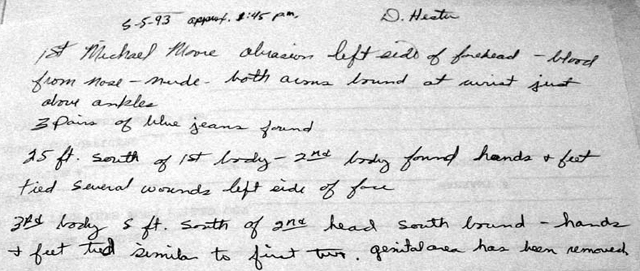 5-5-93 approx. 1:45 pm. D. Hester
1st Michael Moore abrasion left side of forehead - blood
from nose - nude - both arms bound at wrist just
above ankles
3 pairs of blue jeans found
25 ft. south of 1st body - 2nd body found hands & feet
tied several wounds left side of face
3rd body 5 ft. south of 2nd head south bound - hands
& feet tied similar to first two. genital area has been removed